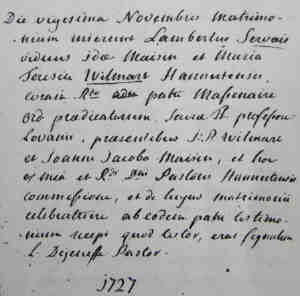 Die vigesima Novembris matrimo-
-nium inierunt Lambertus Servais
viduus Idae Maisin et Maria
Teresia Wilmart Hannutensis,
coram Rdo adm patre Massenaire
Ord praedicatorum, Sacra Th professore
Lovanii, praesentibus J. P. Wilmart
et Joanne Jacobo Maisin, et hoc
ex mea et Rdi Dni Pastoris Hannutensis
commissione, et de hujus matrimonii
celebratione ab eodem patre testimo-
nium recepi quod testor, erat signatum
L. Dejeneffe Pastor.
1727